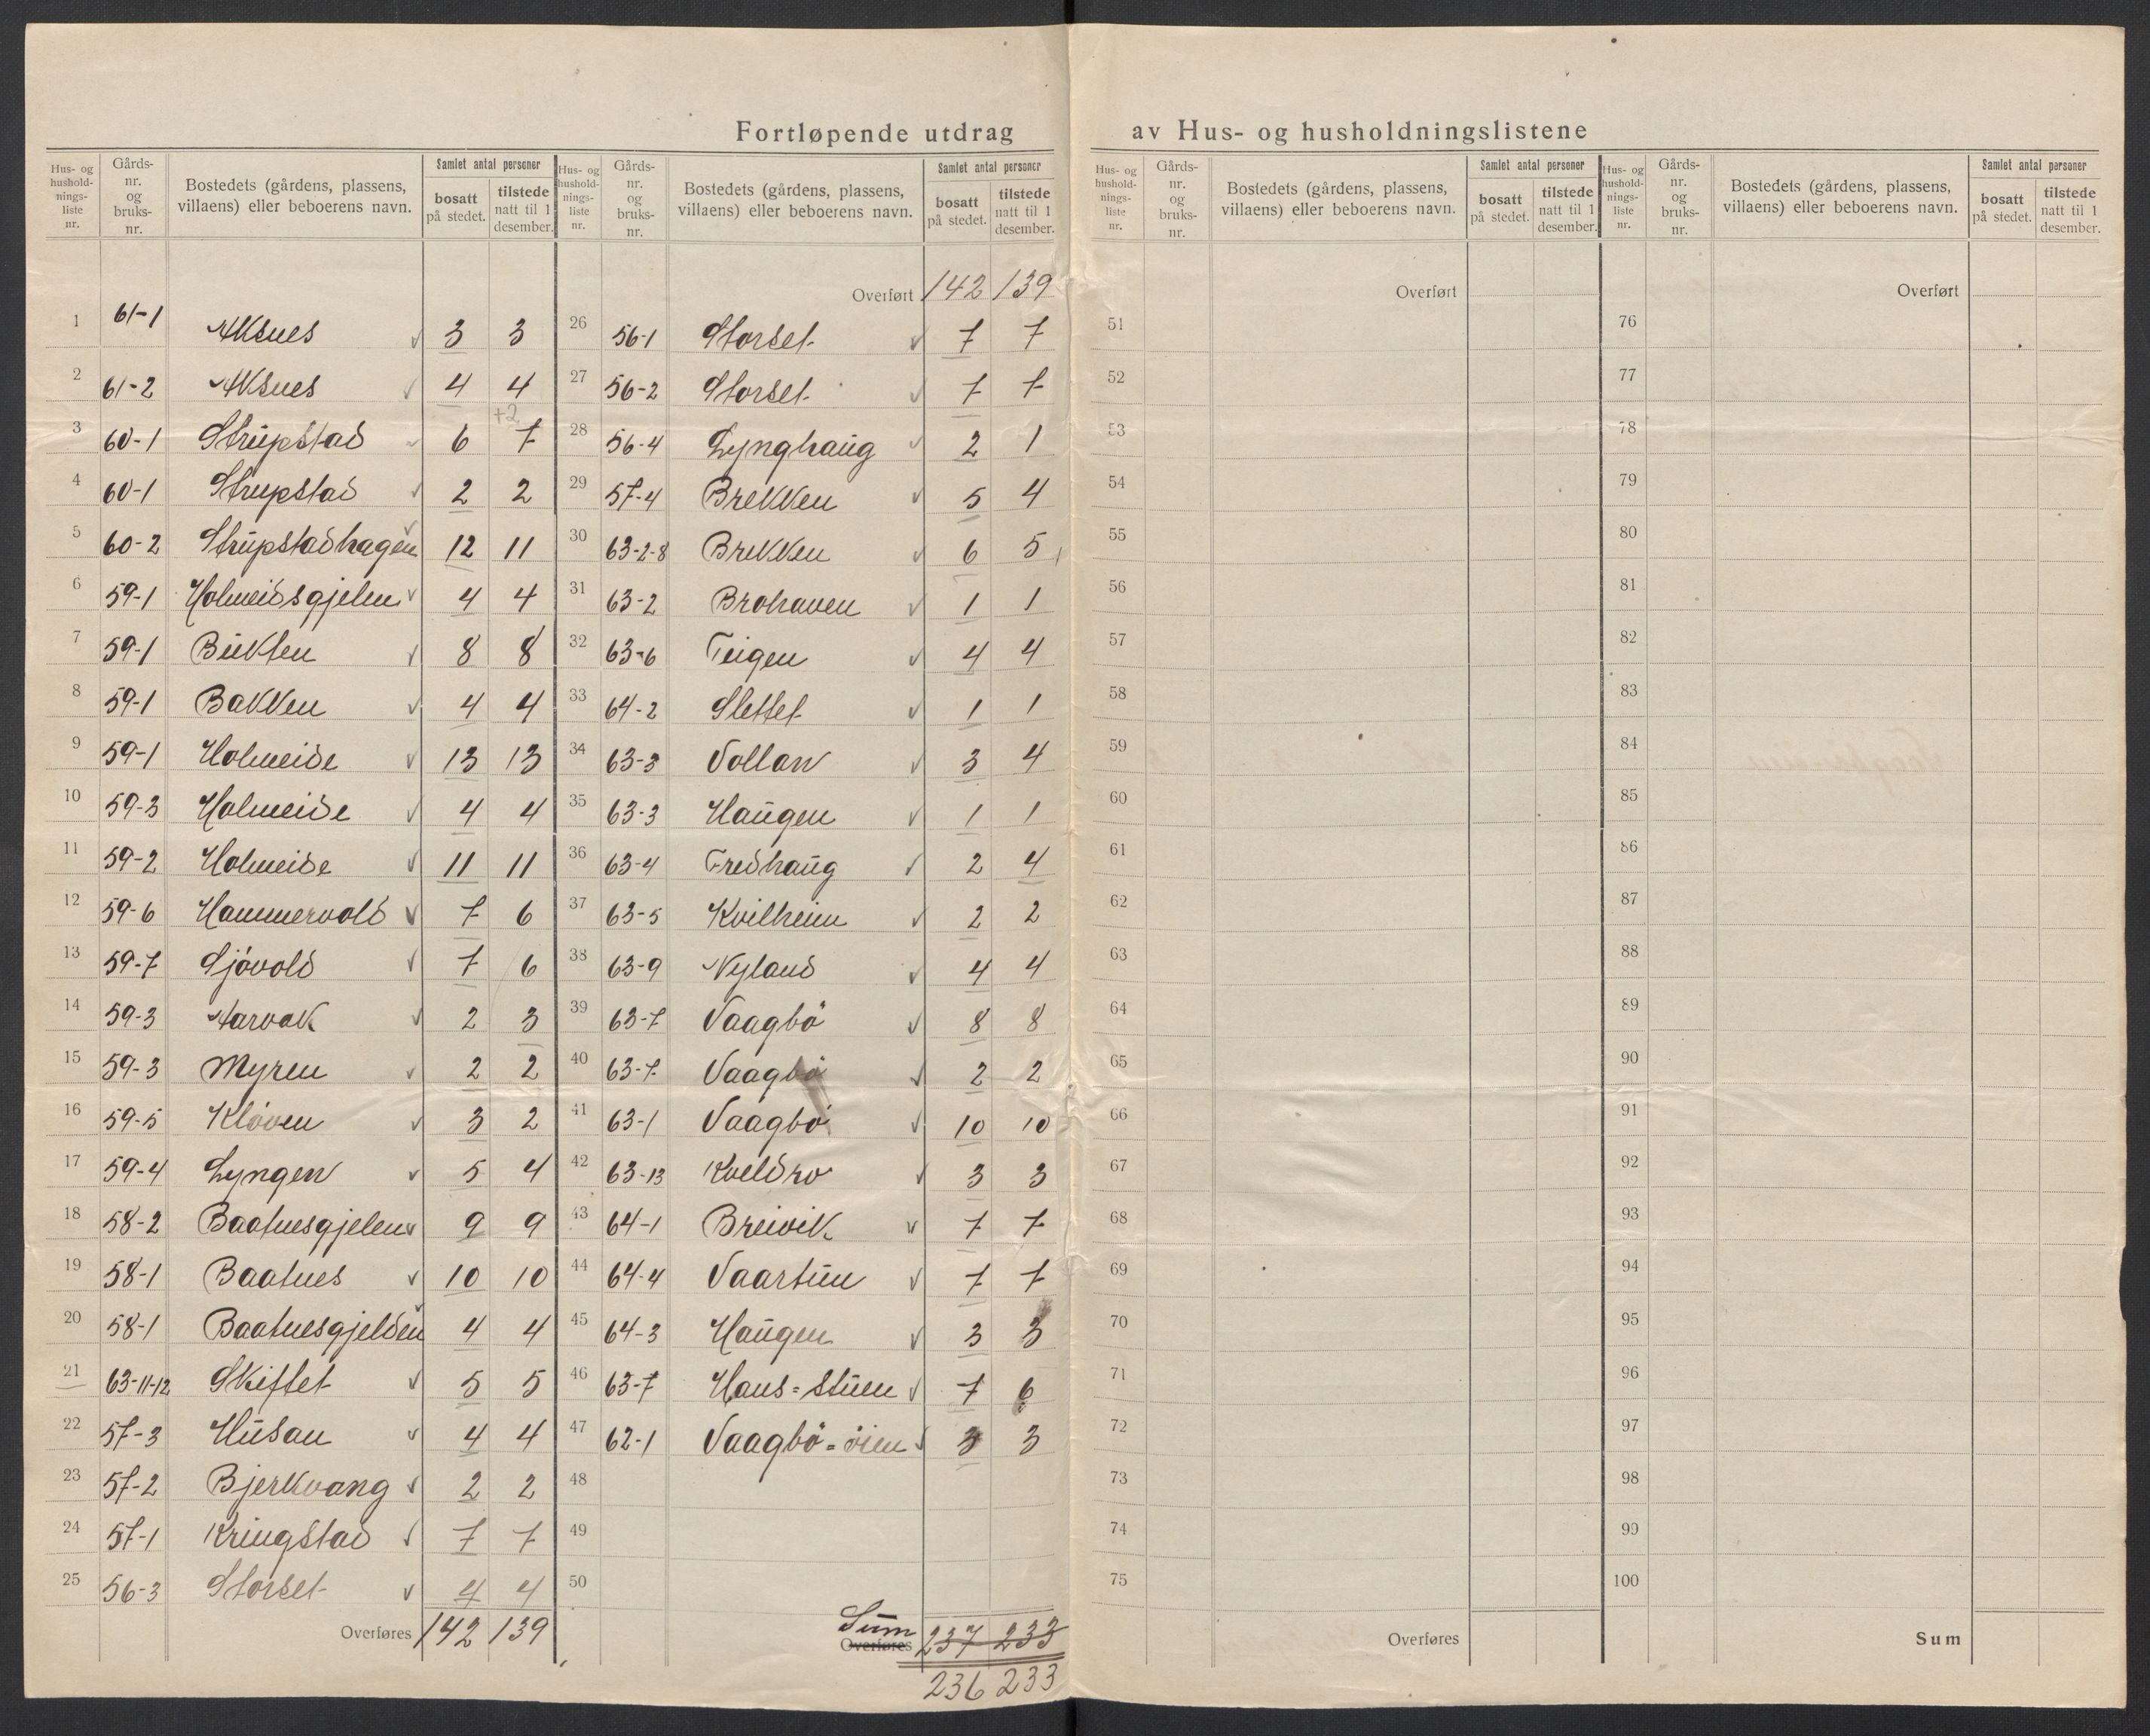 Fortløpende utdrag av Hus- og husholdningslistene
Hus- og hushold-nings-liste nr. | Gårds-nr. og bruks-nr. | Bostedets (gårdens, plassens, villaens) eller beboerens navn. | Samlet antal personer bosatt på stedet. | tilstede natt til 1 desember.
1 61-1 Aksnes 3 3
2 61-2 Aksnes 4 4
3 60-1 Strupstad 6 +2 7
4 60-1 Strupstad 2 2
5 60-2 Strupstadhagen 12 11
6 59-1 Holmeidsgjelen 4 4
7 59-1 Bukten 8 8
8 59-1 Bakken 4 4
9 59-1 Holmeide 13 13
10 59-3 Holmeide 4 4
11 59-2 Holmeide 11 11
12 59-6 Hammervold 7 6
13 59-7 Sjövold 7 6
14 59-3 Aarvak 2 3
15 59-3 Myren 2 2
16 59-5 Klöven 3 2
17 59-4 Lyngen 5 4
18 58-2 Baatnesgjelen 9 9
19 58-1 Baatnes 10 10
20 58-1 Baatnesgjelden 4 4
21 63-11-12 Skiftet 5 5
22 57-3 Husan 4 4
23 57-2 Bjerkvang 2 2
24 57-1 Kringstad 7 7
25 56-3 Storset 4 4
Overføres 142 139
Hus- og hushold-nings-liste nr. | Gårds-nr. og bruks-nr. | Bostedets (gårdens, plassens, villaens) eller beboerens navn. | Samlet antal personer bosatt på stedet. | tilstede natt til 1 desember.
Overført 142 139
26 56-1 Storset 7 7
27 56-2 Storset 7 7
28 56-4 Lynghaug 2 1
29 57-4 Brekken 5 4
30 63-2-8 Brekken 6 5
31 63-2 Brohaven 1 1
32 63-6 Teigen 4 4
33 64-2 Slettet 1 1
34 63-3 Vollan 3 4
35 63-3 Haugen 1 1
36 63-4 Fredhaug 2 4
37 63-5 Kvilheim 2 2
38 63-9 Nyland 4 4
39 63-7 Vaagbö 8 8
40 63-7 Vaagbö 2 2
41 63-1 Vaagbö 10 10
42 63-13 Kveldro 3 3
43 64-1 Breivik 7 7
44 64-4 Vaartun 7 7
45 64-3 Haugen 3 3
46 63-7 Hans=stuen 7 6
47 62-1 Vaagbö=öien 3 3
48
49
50
Sum Overføres 237 233
236 233
Hus- og hushold-nings-liste nr. | Gårds-nr. og bruks-nr. | Bostedets (gårdens, plassens, villaens) eller beboerens navn. | Samlet antal personer bosatt på stedet. | tilstede natt til 1 desember.
Overført
51
52
53
54
55
56
57
58
59
60
61
62
63
64
65
66
67
68
69
70
71
72
73
74
75
Overføres
Hus- og hushold-nings-liste nr. | Gårds-nr. og bruks-nr. | Bostedets (gårdens, plassens, villaens) eller beboerens navn. | Samlet antal personer bosatt på stedet. | tilstede natt til 1 desember.
Overført
76
77
78
79
80
81
82
83
84
85
86
87
88
89
90
91
92
93
94
95
96
97
98
99
100
Sum